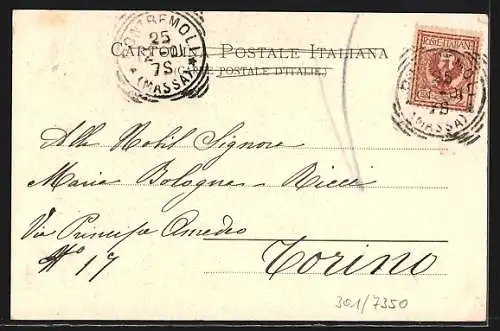 CARTOLINA POSTALE ITALIANA
(CARTE POSTALE D'ITALIE)
PONTREMOLI
25
01
7S
(MASSA)
POSTE ITALIANE
(MASSA)
Alla Nobil Signora
Maria Bologna-Ricci
Via Principe Amedeo
No 17
Torino
301/7350